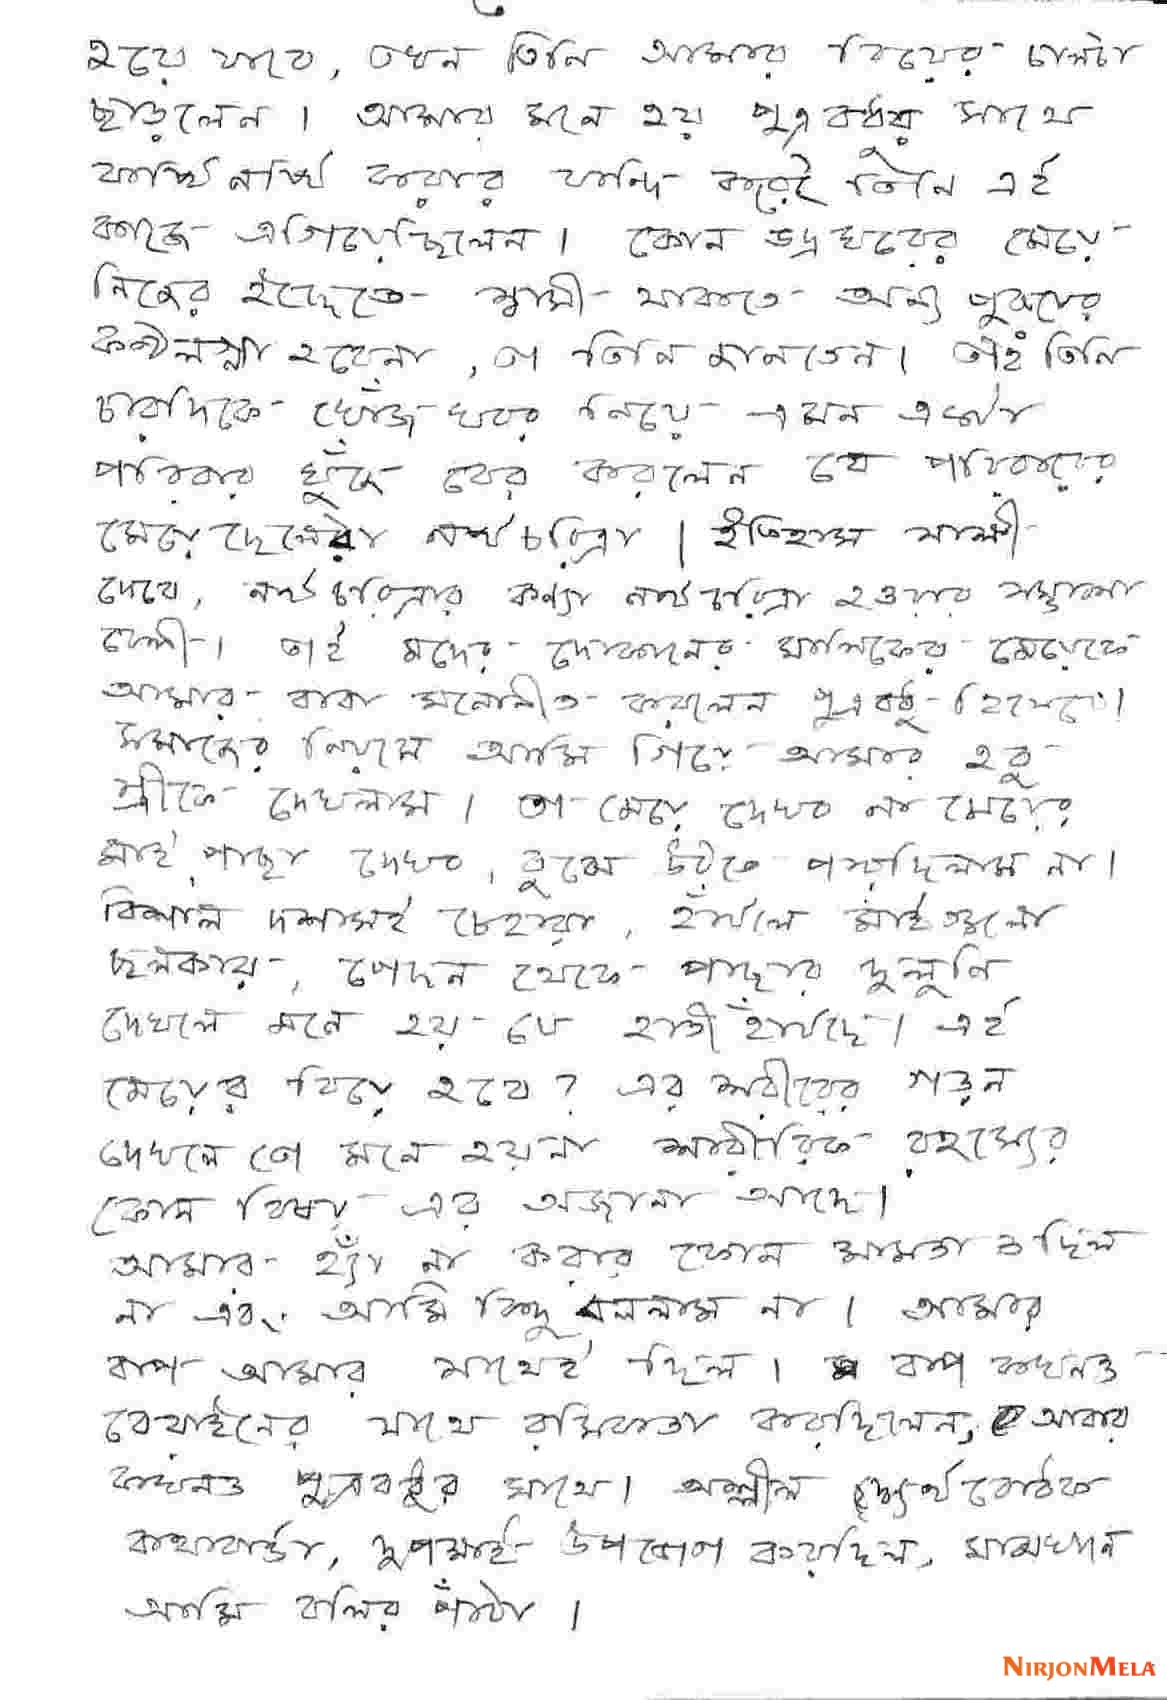 হয়ে যাবে, তখন তিনি আমার বিয়ের চালটা
ছাড়লেন। আমার মনে হয় পুত্রবধুর সাথে
ফষ্টিনষ্টি করার ফন্দি করেই তিনি এই
কাজে এগিয়েছিলেন। কোন ভদ্রঘরের মেয়ে
নিজের ইচ্ছেতে স্বামী থাকতে অন্য পুরুষের
হবেনা, তা তিনি জানতেন। তাই তিনি
চারদিকে খোঁজ খবর নিয়ে এমন একটা
পরিবার খুঁজে বের করলেন যে পরিবারের
মেয়েছেলেরা নষ্টচরিত্রা। ইতিহাস সাক্ষী
দেবে, নষ্টচরিত্রার কণ্যা নষ্টচরিত্রা হওয়ার সম্ভাবনা
বেশী। তাই মদের দোকানের মালিকের মেয়েকে
আমার বাবা মনোনীত করলেন পুত্রবধু হিসেবে।
সমাজের নিয়মে আমি গিয়ে আমার হবু
স্ত্রীকে দেখলাম। তা মেয়ে দেখব না মেয়ের
মাই পাছা দেখব, বুঝে উঠতে পারছিলাম না।
বিশাল দশাসই চেহারা, হাঁটলে মাইগুলো
ছলকায়, পেছন থেকে পাছার দুলুনি
দেখলে মনে হয় যে হাতী হাঁটছে। এই
মেয়ের বিয়ে হবে? এর শরীরের গড়ন
দেখলে তো মনে হয়না শারীরিক রহস্যের
কোন বিষয় এর অজানা আছে।
আমার হ্যাঁ না করার কোন ক্ষমতা ছিল
না এবং আমি কিছু বললাম না। আমার
বাপ আমার সাথেই ছিল। বাপ কখনও
বেয়াইনের সাথে রসিকতা করছিলেন, আবার
কখনও পুত্রবধুর সাথে। অশ্লীল দ্ব্যর্থবোধক
কথাবার্তা, দুপক্ষই উপভোগ করছিল, মাঝখানে
আমি বলির পাঁঠা।
NIRJONMELA